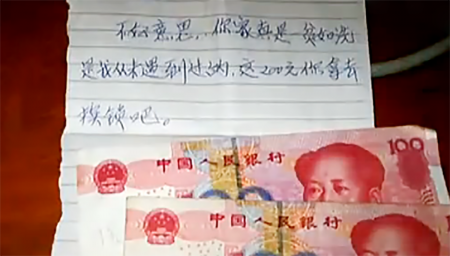 不好意思，你家真是一贫如洗
是我从未遇到过的，这200元你拿去
换锁吧。
中国人民银行
100
中国人民银行